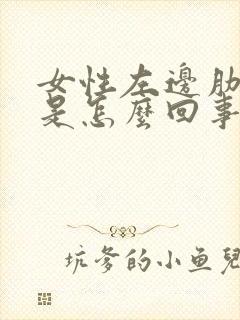 女性左邊肋
是怎麼回事
坑爹的小鱼兒